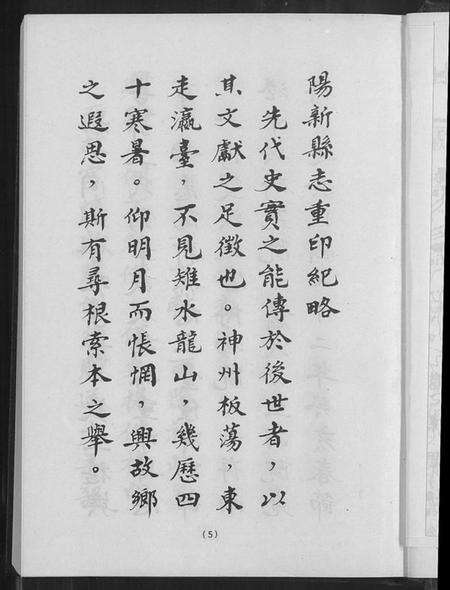 陽新縣志重印紀略
先代史實之能傳於後世者，以
其文獻之足徵也。神州板蕩，東
走瀛臺，不見雉水龍山，幾歷四
十寒暑。仰明月而悵惘，興故鄉
之遐思，斯有尋根索本之舉。
(5)